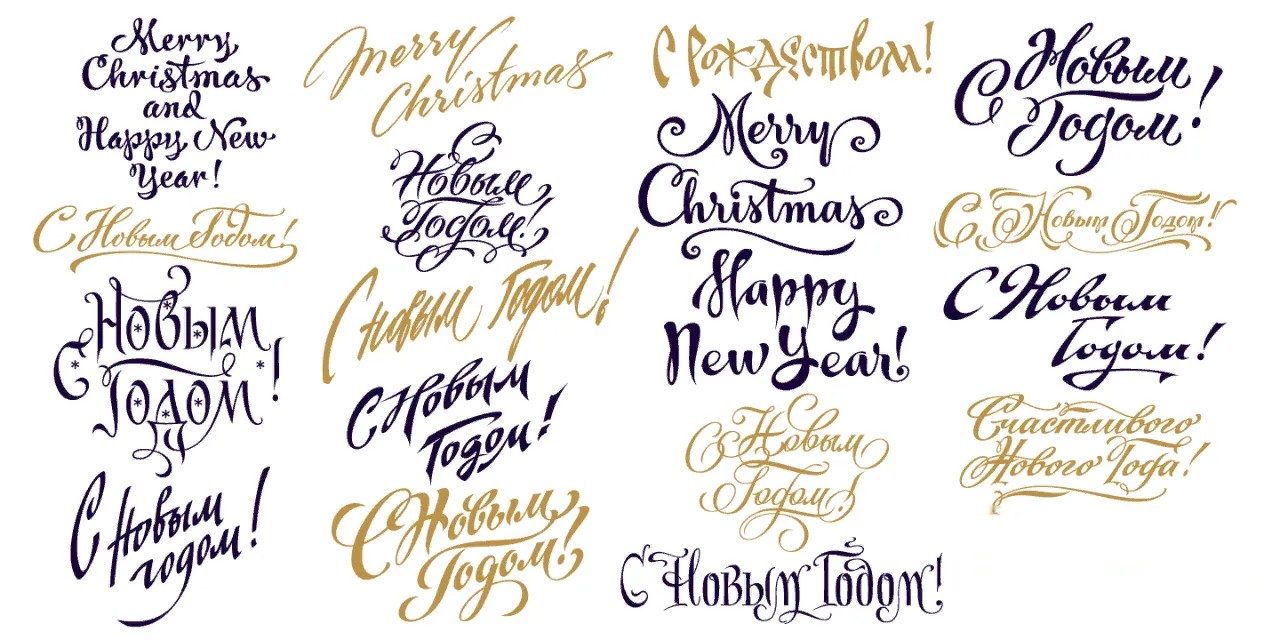 Merry
Christmas
and
Happy New
Year!
С Новым Годом!
С Новым
Годом!
С Новым
годом!
Merry
Christmas
С
Новым
Годом!
С новым Годом!
С Новым
Годом!
С Новым
Годом!
С Рождеством!
Merry
Christmas
Happy
New Year!
С Новым
Годом!
С Новым Годом!
С Новым
Годом!
С Новым Годом!
С Новым
Годом!
Счастливого
Нового Года!